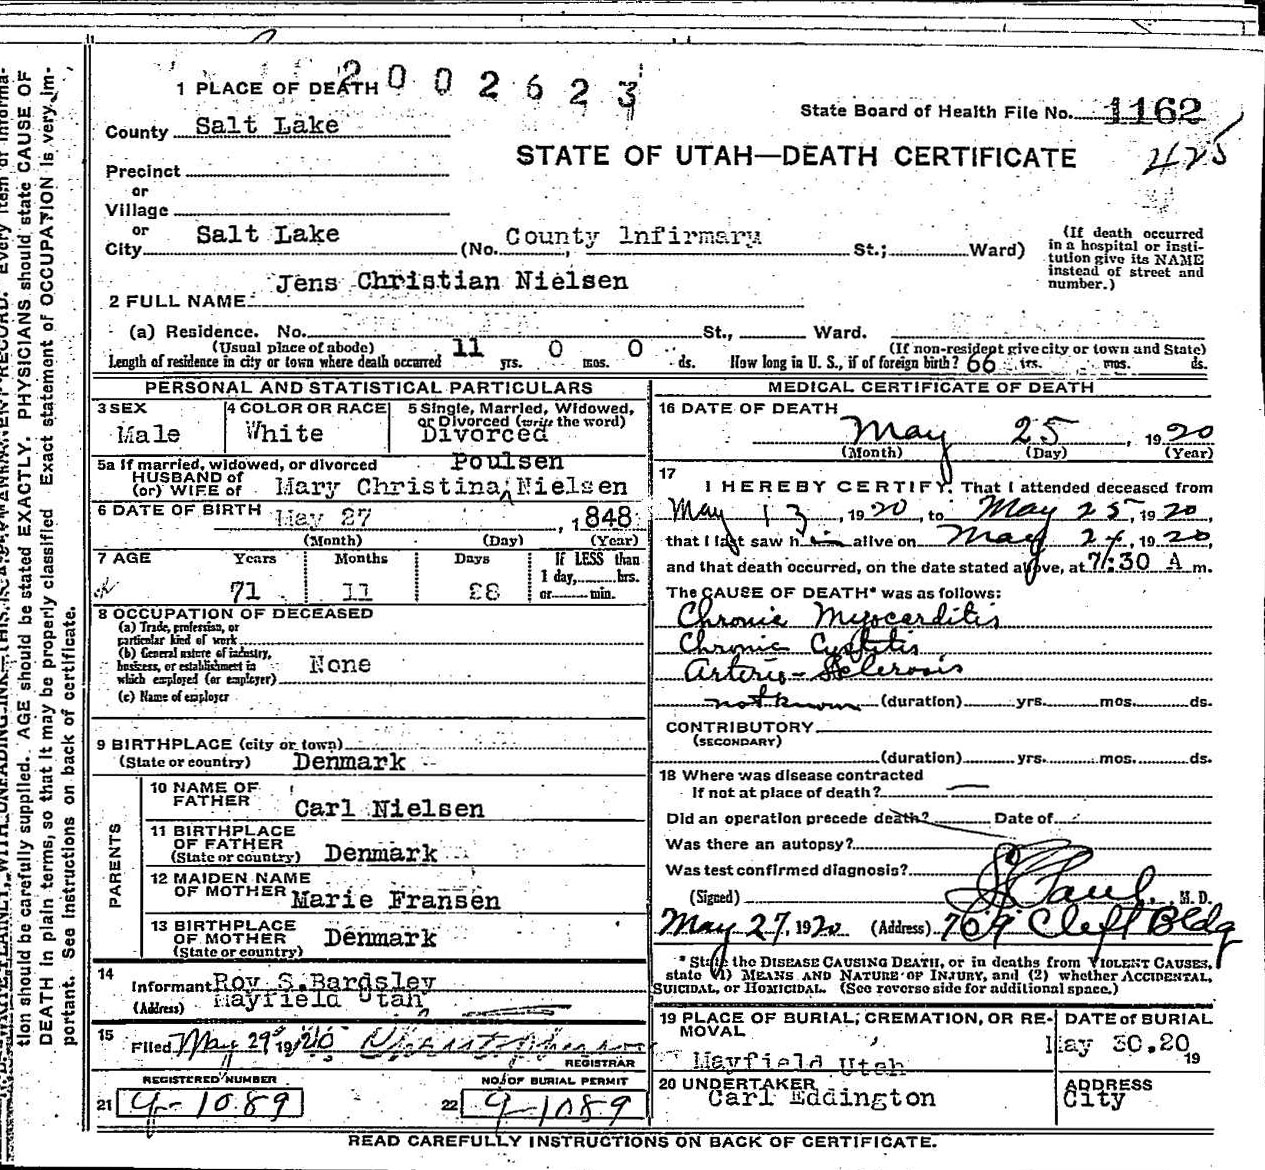 2002623
1 PLACE OF DEATH
County Salt Lake
State Board of Health File No. 1162
425
STATE OF UTAH—DEATH CERTIFICATE
Precinct
or
Village
or
City Salt Lake (No. County Infirmary St.; Ward)
(If death occurred in a hospital or insti-
tution give its NAME
instead of street and
number.)
2 FULL NAME Jens Christian Nielsen
(a) Residence. No. St., Ward.
(Usual place of abode) (If non-resident give city or town and State)
Length of residence in city or town where death occurred 11 yrs. 0 mos. 0 ds. How long in U. S., if of foreign birth? 66 yrs. mos. ds.
PERSONAL AND STATISTICAL PARTICULARS
3 SEX
Male
4 COLOR OR RACE
White
5 Single, Married, Widowed,
or Divorced (write the word)
Divorced
5a If married, widowed, or divorced
HUSBAND of
(or) WIFE of Mary Christina Poulsen Nielsen
6 DATE OF BIRTH May 27, 1848
(Month) (Day) (Year)
7 AGE Years Months Days
71 11 28
If LESS than
1 day, hrs.
or min.
8 OCCUPATION OF DECEASED
(a) Trade, profession, or
particular kind of work
(b) General nature of industry,
business, or establishment in
which employed (or employer) None
(c) Name of employer
9 BIRTHPLACE (city or town)
(State or country) Denmark
PARENTS
10 NAME OF
FATHER Carl Nielsen
11 BIRTHPLACE
OF FATHER
(State or country) Denmark
12 MAIDEN NAME
OF MOTHER Marie Fransen
13 BIRTHPLACE
OF MOTHER
(State or country) Denmark
14
Informant Roy S. Bardsley
(Address) Mayfield Utah
15
Filed May 29 1920
REGISTRAR
REGISTERED NUMBER
21 9-1089
NO. OF BURIAL PERMIT
22 9-1089
MEDICAL CERTIFICATE OF DEATH
16 DATE OF DEATH
May 25, 1920
(Month) (Day) (Year)
17
I HEREBY CERTIFY, That I attended deceased from
May 13, 1920, to May 25, 1920,
that I last saw him alive on May 24, 1920,
and that death occurred, on the date stated above, at 7:30 A m.
The CAUSE OF DEATH* was as follows:
Chronic Myocarditis
Chronic Cystitis
Arterio-Sclerosis
not known (duration) yrs. mos. ds.
CONTRIBUTORY
(SECONDARY)
(duration) yrs. mos. ds.
18 Where was disease contracted
If not at place of death?
Did an operation precede death? Date of
Was there an autopsy?
Was test confirmed diagnosis?
(Signed) Paul, M. D.
May 27, 1920 (Address) 709 Clift Bldg
*State the DISEASE CAUSING DEATH, or in deaths from VIOLENT CAUSES,
state (1) MEANS AND NATURE OF INJURY, and (2) whether ACCIDENTAL,
SUICIDAL, or HOMICIDAL. (See reverse side for additional space.)
19 PLACE OF BURIAL, CREMATION, OR RE-
MOVAL
Mayfield Utah
DATE of BURIAL
May 30.20
19
20 UNDERTAKER
Carl Eddington
ADDRESS
City
READ CAREFULLY INSTRUCTIONS ON BACK OF CERTIFICATE.
tion should be carefully supplied. AGE should be stated EXACTLY. PHYSICIANS should state CAUSE OF
DEATH in plain terms, so that it may be properly classified. Exact statement of OCCUPATION is very im-
portant. See instructions on back of certificate.